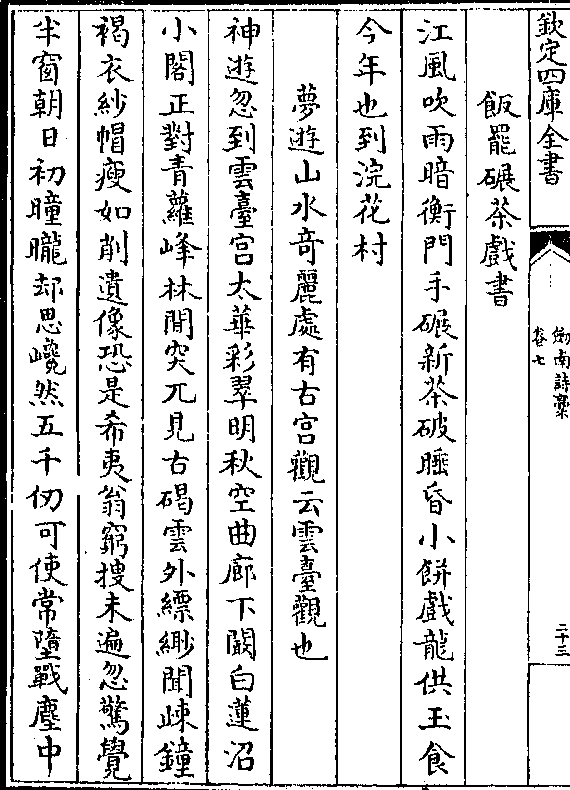 欽定四庫全書
劍南詩藁
卷七
二十三
飯罷碾茶戲書
江風吹雨暗衡門手碾新茶破睡昏小餅戲龍供玉食
今年也到浣花村
夢遊山水奇麗處有古宮觀云雲臺觀也
神遊忽到雲臺宮太華彩翠明秋空曲廊下闞白蓮沼
小閣正對青蘿峰林間突兀見古碣雲外縹緲聞疎鐘
褐衣紗帽瘦如削遺像恐是希夷翁窮搜未遍忽驚覺
半窗朝日初曈曨却思巉然五千仞可使常墮戰塵中